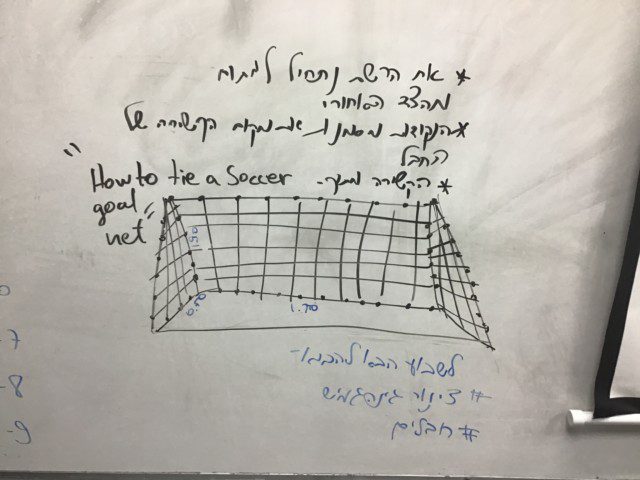 * את הרשת נתחיל למתוח
מהצד האחורי
* הנקודות מסמנות את מקום הקשירה של
החבל
* הקשירה
"How to tie a Soccer
goal
net"
1.50
0.50
1.70
לשבוע הבא להביא-
# צינור
# חבלים
-7
-8
-9